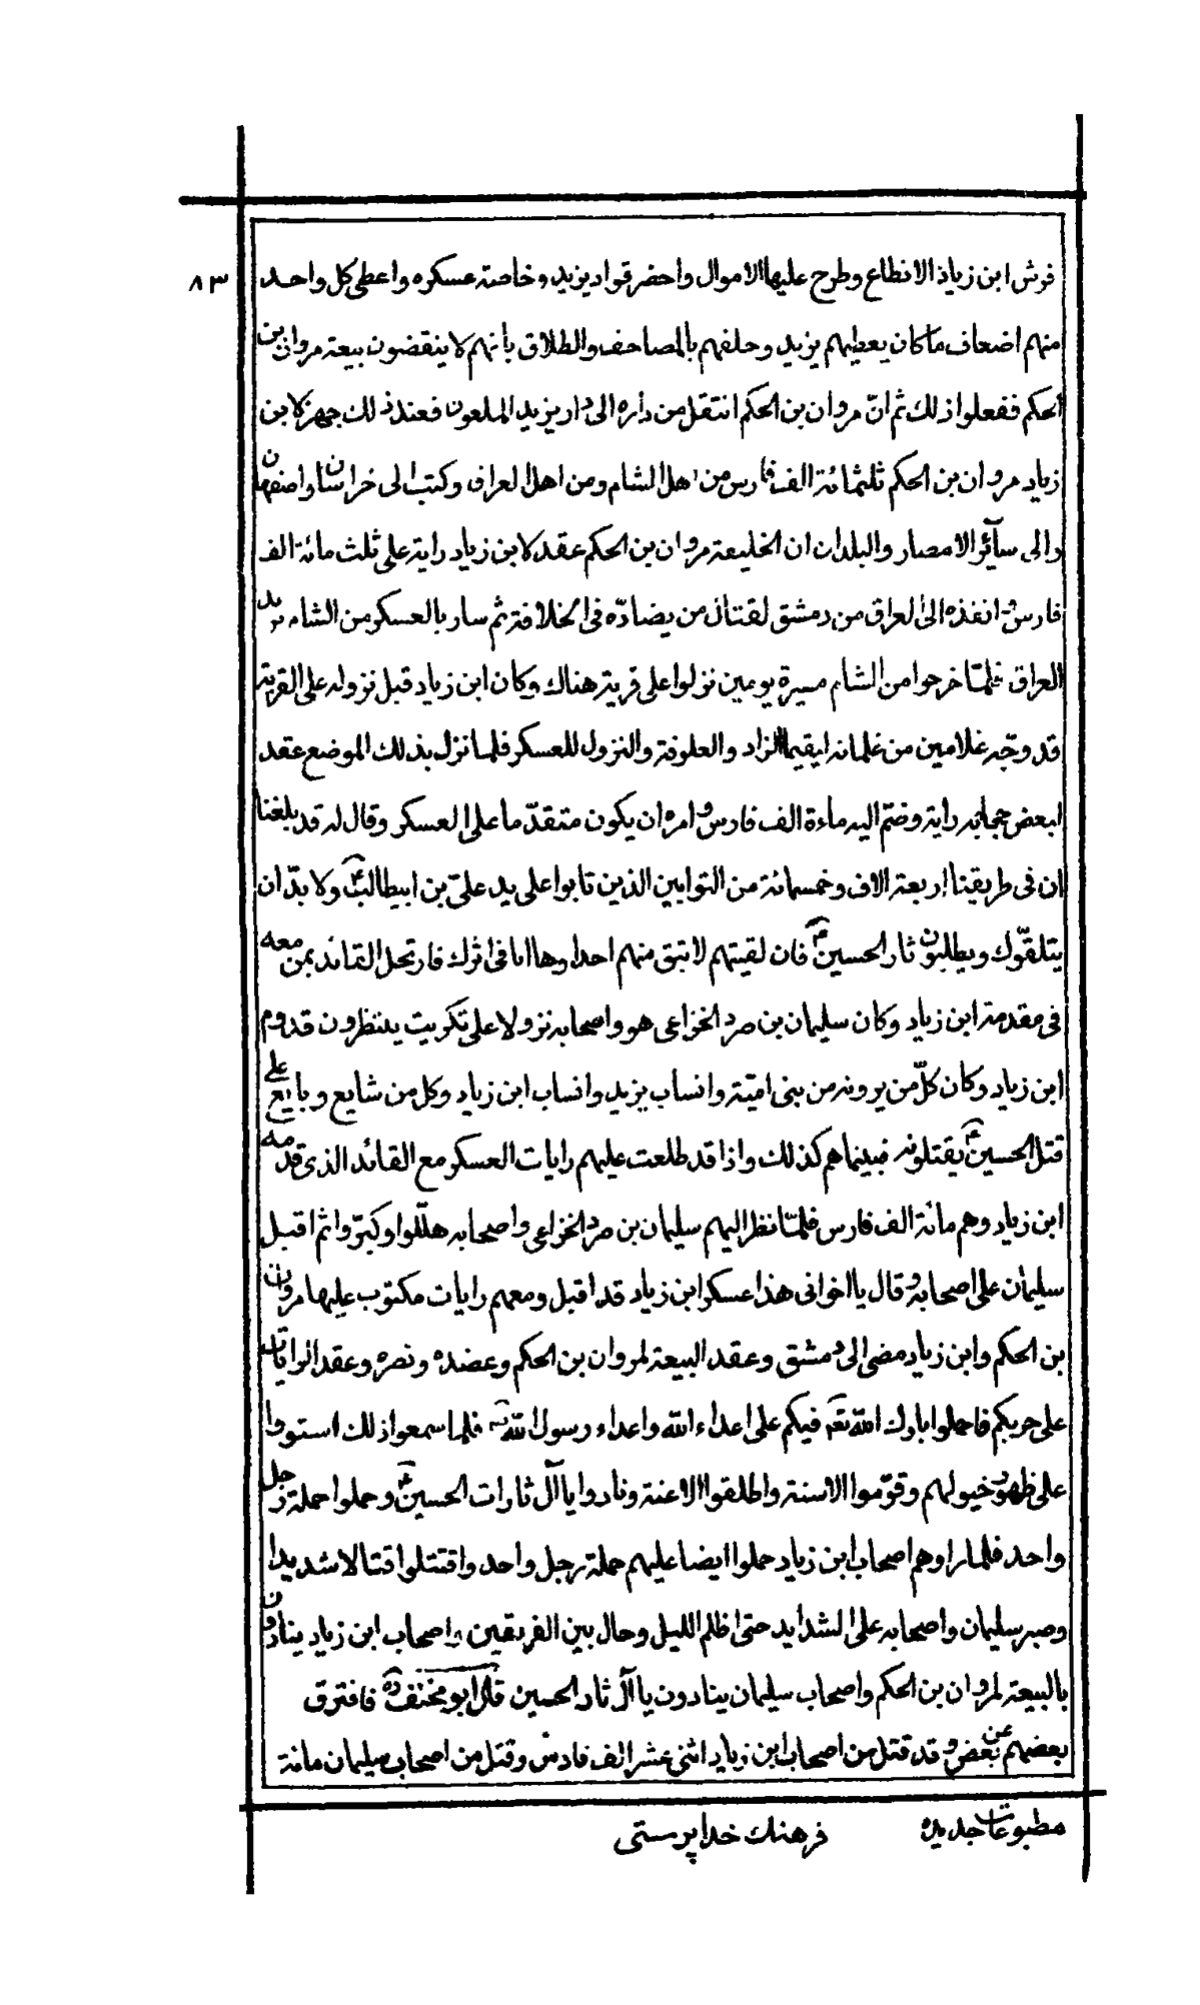 ٨٣
فرش ابن زياد الانطاع وطرح عليها الاموال واحضر قواد يزيد وخاصته عسكره واعطى كل واحد
منهم اضعاف ما كان يعطيهم يزيد وحلفهم بالمصاحف والطلاق بأنهم لا ينقضون بيعة مروان بن
الحكم ففعلوا ذلك ثم انّ مروان بن الحكم انتقل من داره الى دار يزيد الملعون فعند ذلك جهز لابن
زياد مروان بن الحكم ثلثمائة الف فارس من اهل الشام ومن اهل العراق وكتب الى خراسان واصفهان
والى سآئر الامصار والبلدان ان الخليفة مروان بن الحكم عقد لابن زياد راية على ثلث مائة الف
فارس وانفذه الى العراق من دمشق لقتال من يضادّه فى الخلافة ثم سار بالعسكر من الشام يريد
العراق فلمّا خرجوا من الشام مسيرة يومين نزلوا على قرية هناك وكان ابن زياد قبل نزوله على القرية
قد وجّه غلامين من غلمانه ليقيما الزاد والعلوفة والنزول للعسكر فلما نزل بذلك الموضع عقد
لبعض حجابه راية وضمّ اليه ماءة الف فارس وامره ان يكون متقدّما على العسكر وقال له قد بلغنا
ان فى طريقنا اربعة الاف وخمسمائة من التوابين الذين تابوا على يد علىّ بن ابيطالبؑ ولا بدّ ان
يتلقّوك ويطلبون ثار الحسينؑ فان لقيتهم لا تبق منهم احدا وها انا فى اثرك فارتحل القائد بمن معه
فى مقدمة ابن زياد وكان سليمان بن صرد الخزاعى هو واصحابه نزولا على تكريت ينتظرون قدوم
ابن زياد وكان كلّ من يرونه من بنى اميّة وانساب يزيد وانساب ابن زياد وكل من شايع وبايع على
قتل الحسينؑ يقتلونه فبينما هم كذلك واذا قد طلعت عليهم رايات العسكر مع القائد الذى قدمه
ابن زياد وهم مائة الف فارس فلمّا نظر اليهم سليمان بن صرد الخزاعى واصحابه هلّلوا وكبّروا ثم اقبل
سليمان على اصحابه وقال يا اخوانى هذا عسكر ابن زياد قد اقبل ومعهم رايات مكتوب عليها مروان
بن الحكم وابن زياد مضى الى دمشق وعقد البيعة لمروان بن الحكم وعضده ونصره وعقد الرايات
على حربكم فاحملوا بارك اللّه تعه فيكم على اعداء اللّه واعداء رسول اللّه فلما سمعوا ذلك استووا
على ظهور خيولهم وقوّموا الاسنة واطلقوا الاعنة ونادوا يا آل ثارات الحسينؑ وحملوا حملة رجل
واحد فلما راوهم اصحاب ابن زياد حملوا ايضا عليهم حملة رجل واحد واقتتلوا قتالا شديدا
وصبر سليمان واصحابه على الشدايد حتى اظلم الليل وحال بين الفريقين واصحاب ابن زياد ينادون
بالبيعة لمروان بن الحكم واصحاب سليمان ينادون يا آل ثار الحسين قال ابو مخنف ره فافترق
بعضهم عن بعض وقد قتل من اصحاب ابن زياد اثنى عشر الف فارس وقتل من اصحاب سليمان مائة
مطبوعات جديده فرهنك خدا پرستى